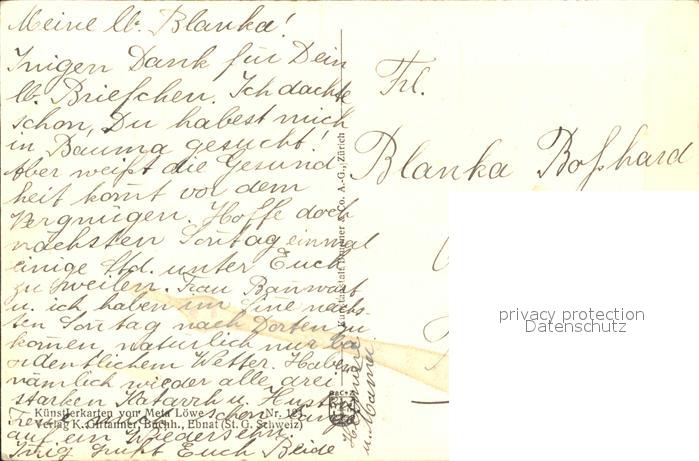 Meine lb. Blanka!
Inigen Dank für Dein
lb. Briefchen. Ich dachte
schon, Du habest mich
in Bauma gesucht!
Aber weißt die Gesund-
heit komt vor dem
Vergnügen. Hoffe doch
nächsten Sontag einmal
einige Std. unter Euch
zu weilen. Frau Banwart
u. ich haben im Sine näch-
ten Sontag nach Dorten zu
komen, natürlich nur bei
ordentlichem Wetter. Haben
nämlich wieder alle drei
starken Katarrh u. Husten
schon
auf ein Wiedersehn.
Inig grüßt Euch Beide
u. Mama
Frl.
Blanka Boßhard
Kunstanstalt Brunner & Co. A.-G., Zürich
Künstlerkarten von Meta Löwe Nr. 123
Verlag K. Gittanner, Buchh., Ebnat (St. G. Schweiz)
privacy protection
Datenschutz